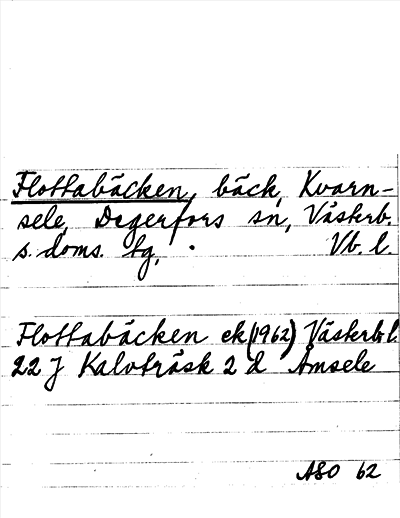 Flottabäcken, bäck, Kvarn-
sele, Degerfors sn, Västerb.
s. doms. tg, . Vb. l.
Flottabäcken ek (1962) Västerb l.
22 J Kalvträsk 2 d Åmsele
ASO 62